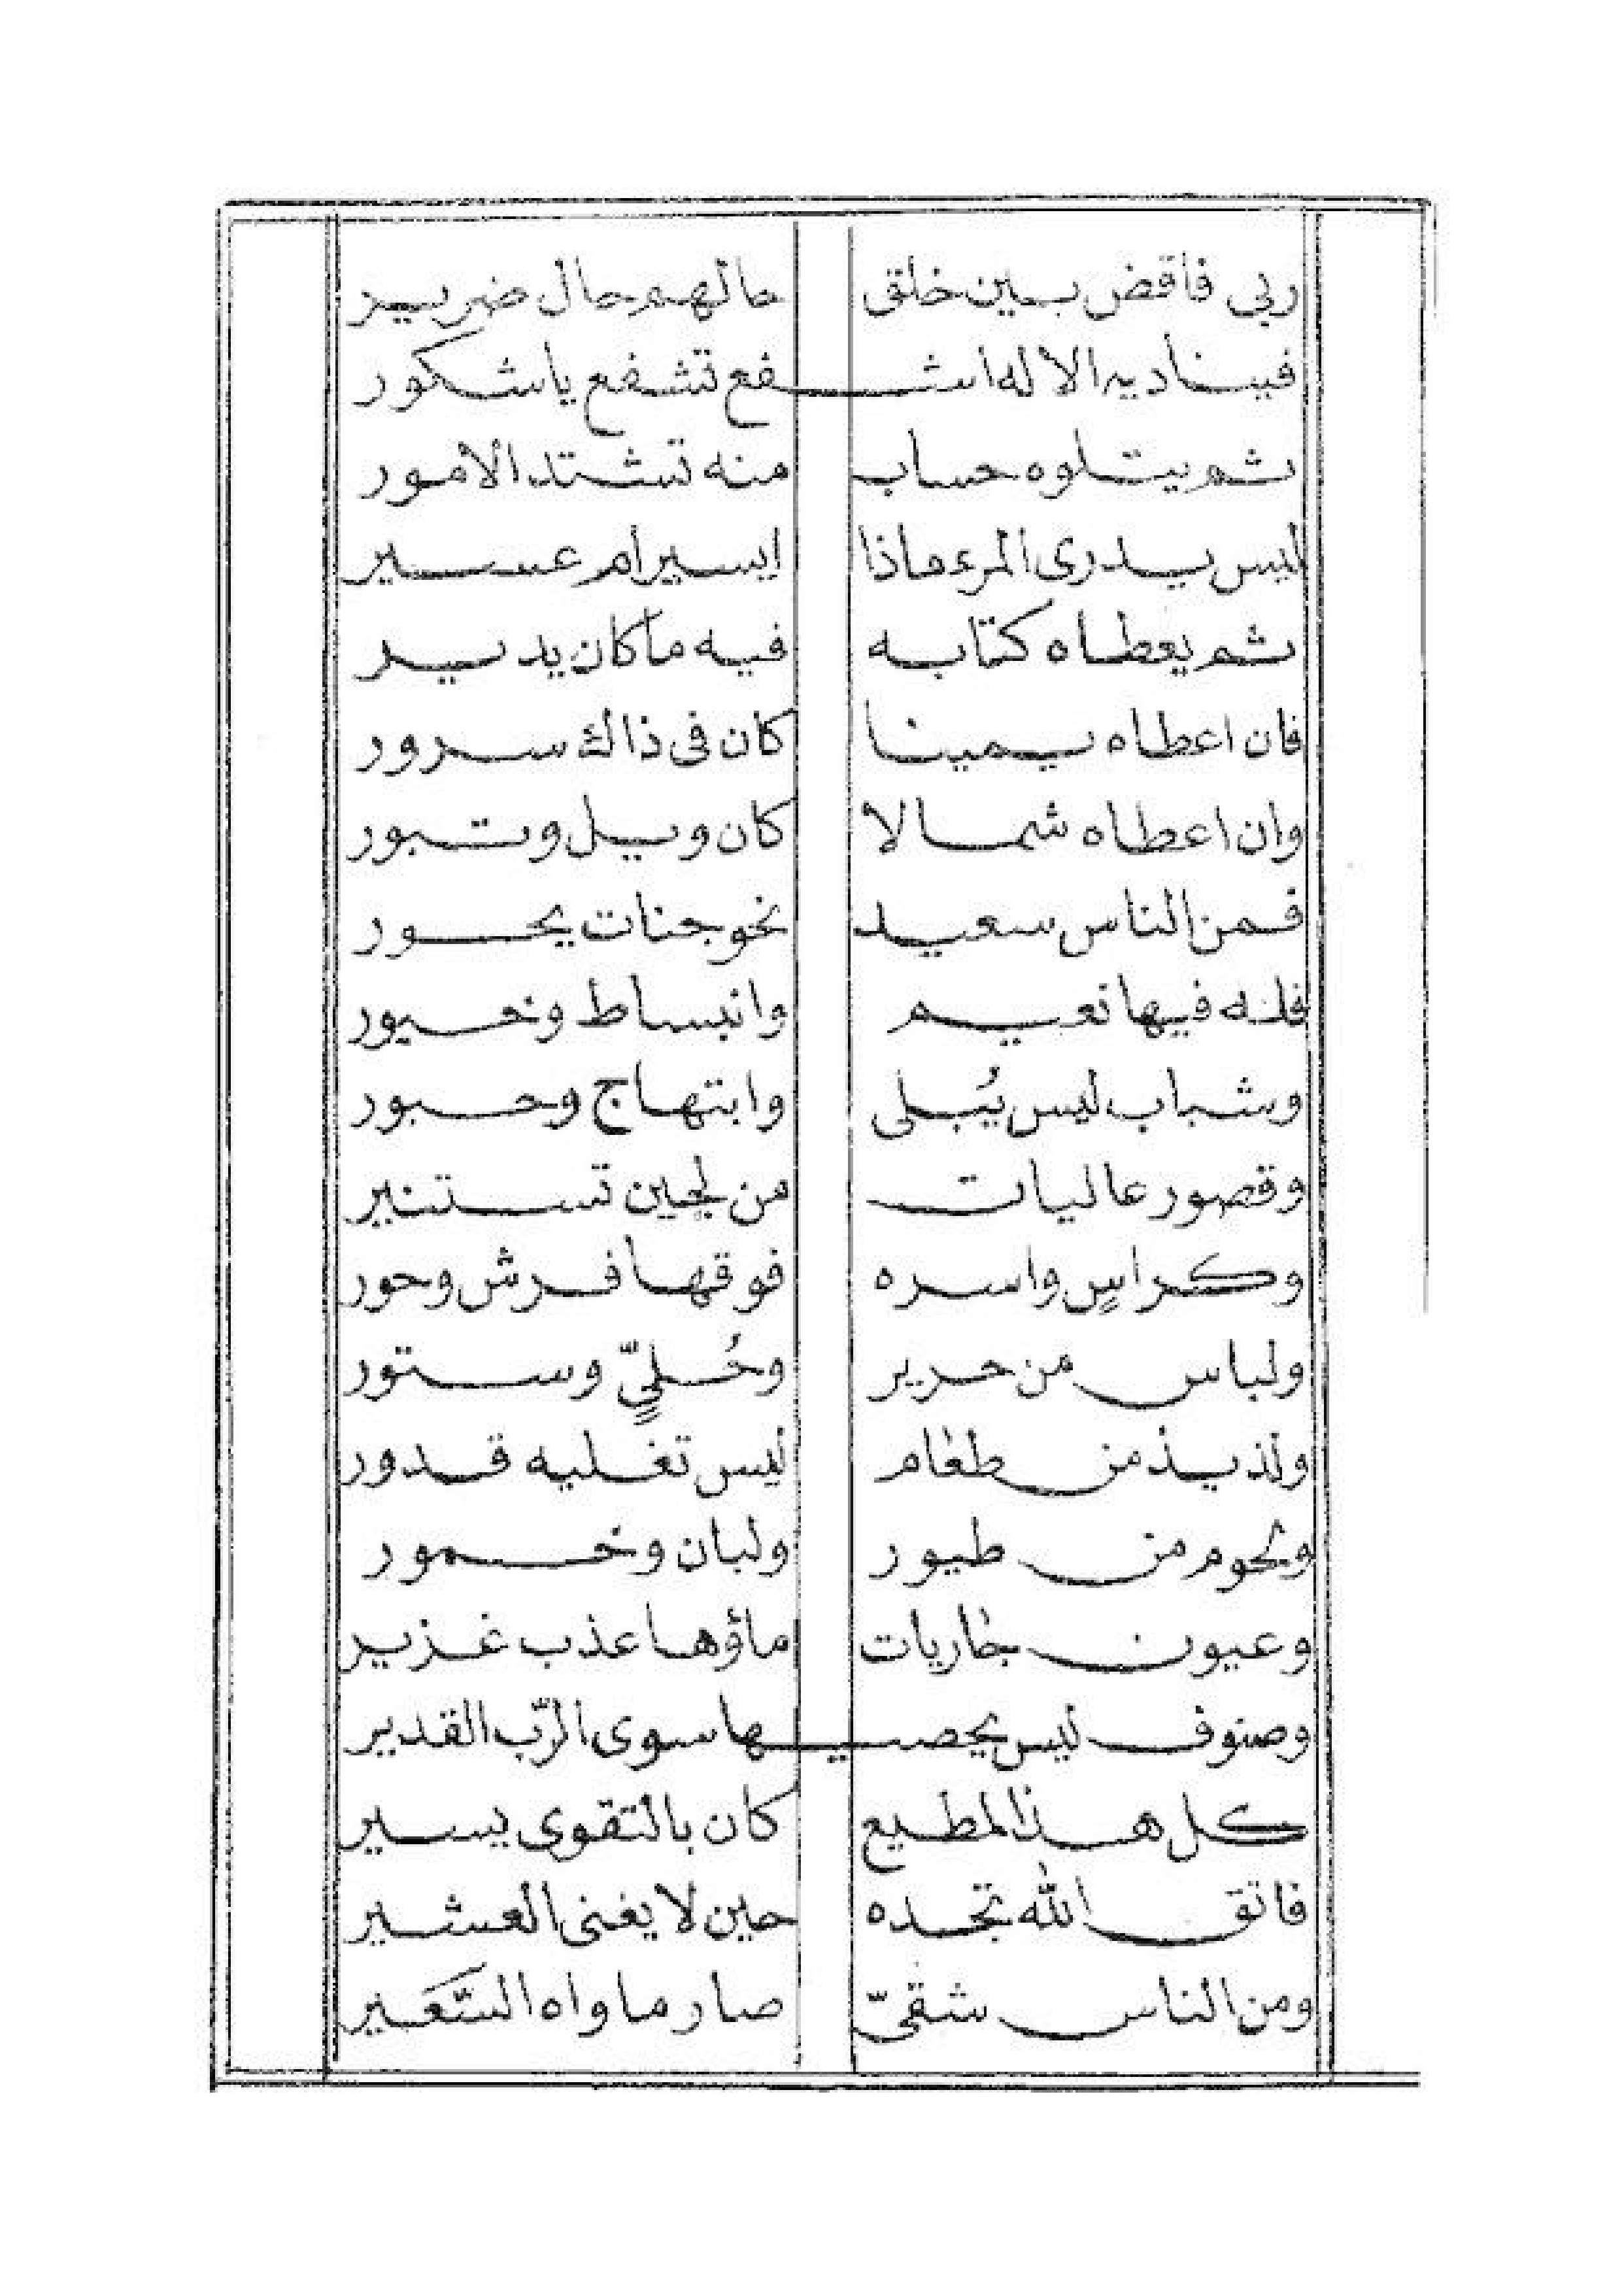 ربي فاقض بين خلق حالهم حال ضرير
فيناديه الاله اشفع تشفع ياشكور
ثم يتلوه حساب منه تشتد الامور
ليس يدرى المرء ماذا ايسير أم عسير
ثم يعطاه كتابه فيه ما كان يدير
فان اعطاه يمينا كان فى ذاك سرور
وان اعطاه شمالا كان ويل وثبور
فمن الناس سعيد نحو جنات يحور
فله فيها نعيم وانبساط وحبور
وشباب ليس يُبلى وابتهاج وحبور
وقصور عاليات من لجين تستنير
وكراسٍ واسره فوقها فرش وحور
ولباس من حرير وحُليٍّ وستور
ولذيذ من طعام ليس تغليه قدور
ولحوم من طيور ولبان وخمور
وعيون جاريات ماؤها عذب غزير
وصنوف ليس يحصيها سوى الرّب القدير
كل هذا لمطيع كان بالتقوى يسير
فاتق الله تجده حين لا يغنى العشير
ومن الناس شقىّ صار ماواه السَّعَير